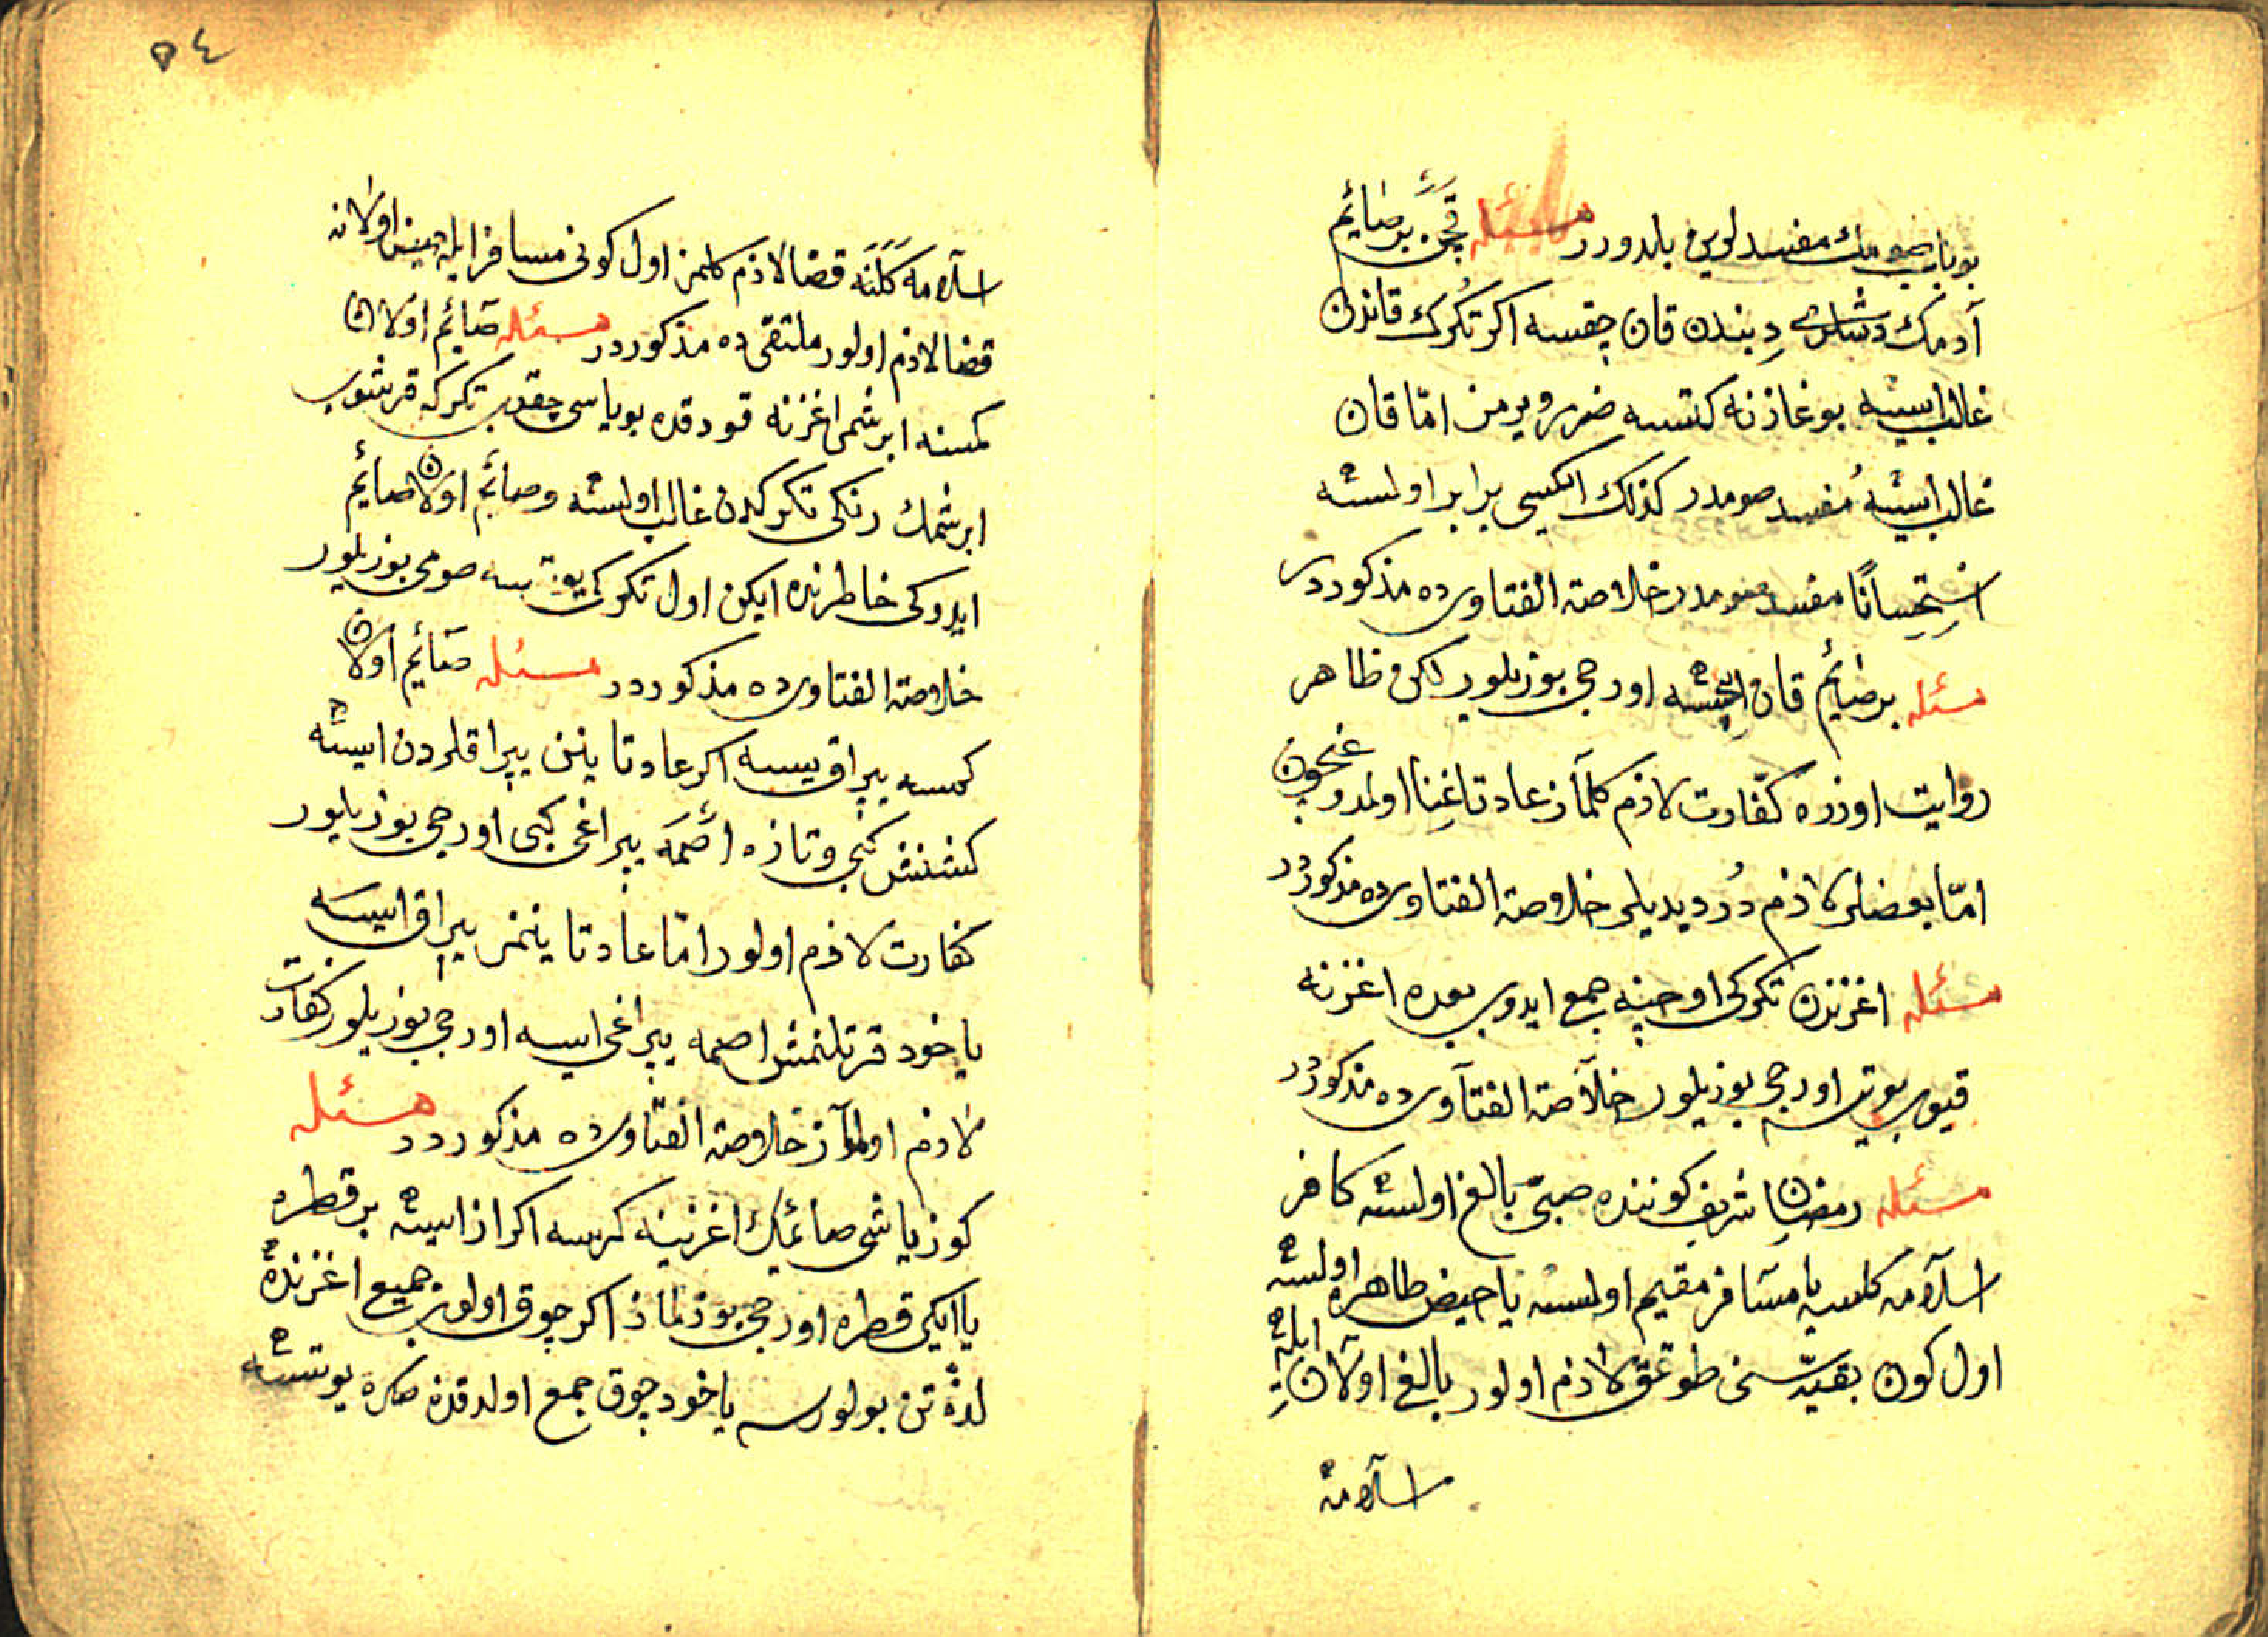 بو باب صومك مفسدلرین بلدورر مسئله قچن بر صٰائم
آدمك دشلری دِبندن قان چقسه اكر تُكرك قاندن
غالب ایسه بوغازنه كتسه ضرر ویرمز امّا قان
غالب ایسه مُفسد صومدر كذلك ایكیسی برابر اولسه
اسْتِحِسانًا مفسد صومدر خلاصة الفتاوی ده مذكوردر
مسئله بر صٰائم قان ایچسه اورجی بوزیلور لكن ظاهر
روایت اوزره كفّارت لازم كلمآز عادتا غِنا اولمدوغیچون
امّا بعضلر لازم دُر دیدیلر خلاصة الفتاوی ده مذكورُدر
مسئله اغزندن تكركی اوجینه جمع ایدوب بعده اغزنه
قیوب یوتسه اورجی بوزیلور خلآصة الفتآوی ده مذكورُدر
مسئله رمضان شریف كوننده صبیّ بالغ اولسه كافر
اسلآمه كلسه یا مسآفر مقیم اولسه یا حیض طاهره اولسه
اول كون بقیّه سنی طوتمق لازم اولور بالغ اولآن ایله
اسلآمه
٥٤
اسلآمه كَلَنَه قضا لازم كلمز اول كونی مسافر ایله حیض اولانه
قضا لازم اولور ملتقی ده مذكوردر مسئله صٓائم اولان
كمسنه ابرشمی اغزنه قودقده بویاسی چقوب تكركه قرشوب
ابرشمك رنكی تكركدن غالب اولسه و صائم اولان صائم
ایدوكی خاطرنده ایكن اول تكركی یوتسه صومی بوزیلور
خلاصة الفتاوی ده مذكوردر مسئله صٓائم اولان
كمسه یپراق یسه اكر عادتا ینن یپراقلردن ایسه
كشنش كبی و تازه اصمَه یپراغی كبی اورجی بوزیلور
كفارت لازم اولور امّا عادتا ینمز یپراق ایسه
یاخود قرتلنمش اصمه یپراغی ایسه اورجی بوزیلور كفارت
لازم اولمآز خلاصة الفتاوی ده مذكوردر مسئله
كوز یاشی صائمك اغزینه كرسه اكر از ایسه بر قطره
یا ایكی قطره اورجی بوزلماز اكر چوق اولوب جمیع اغزنده
لذّتن بولورسه یاخود چوق جمع اولدقدن صكره یوتسه